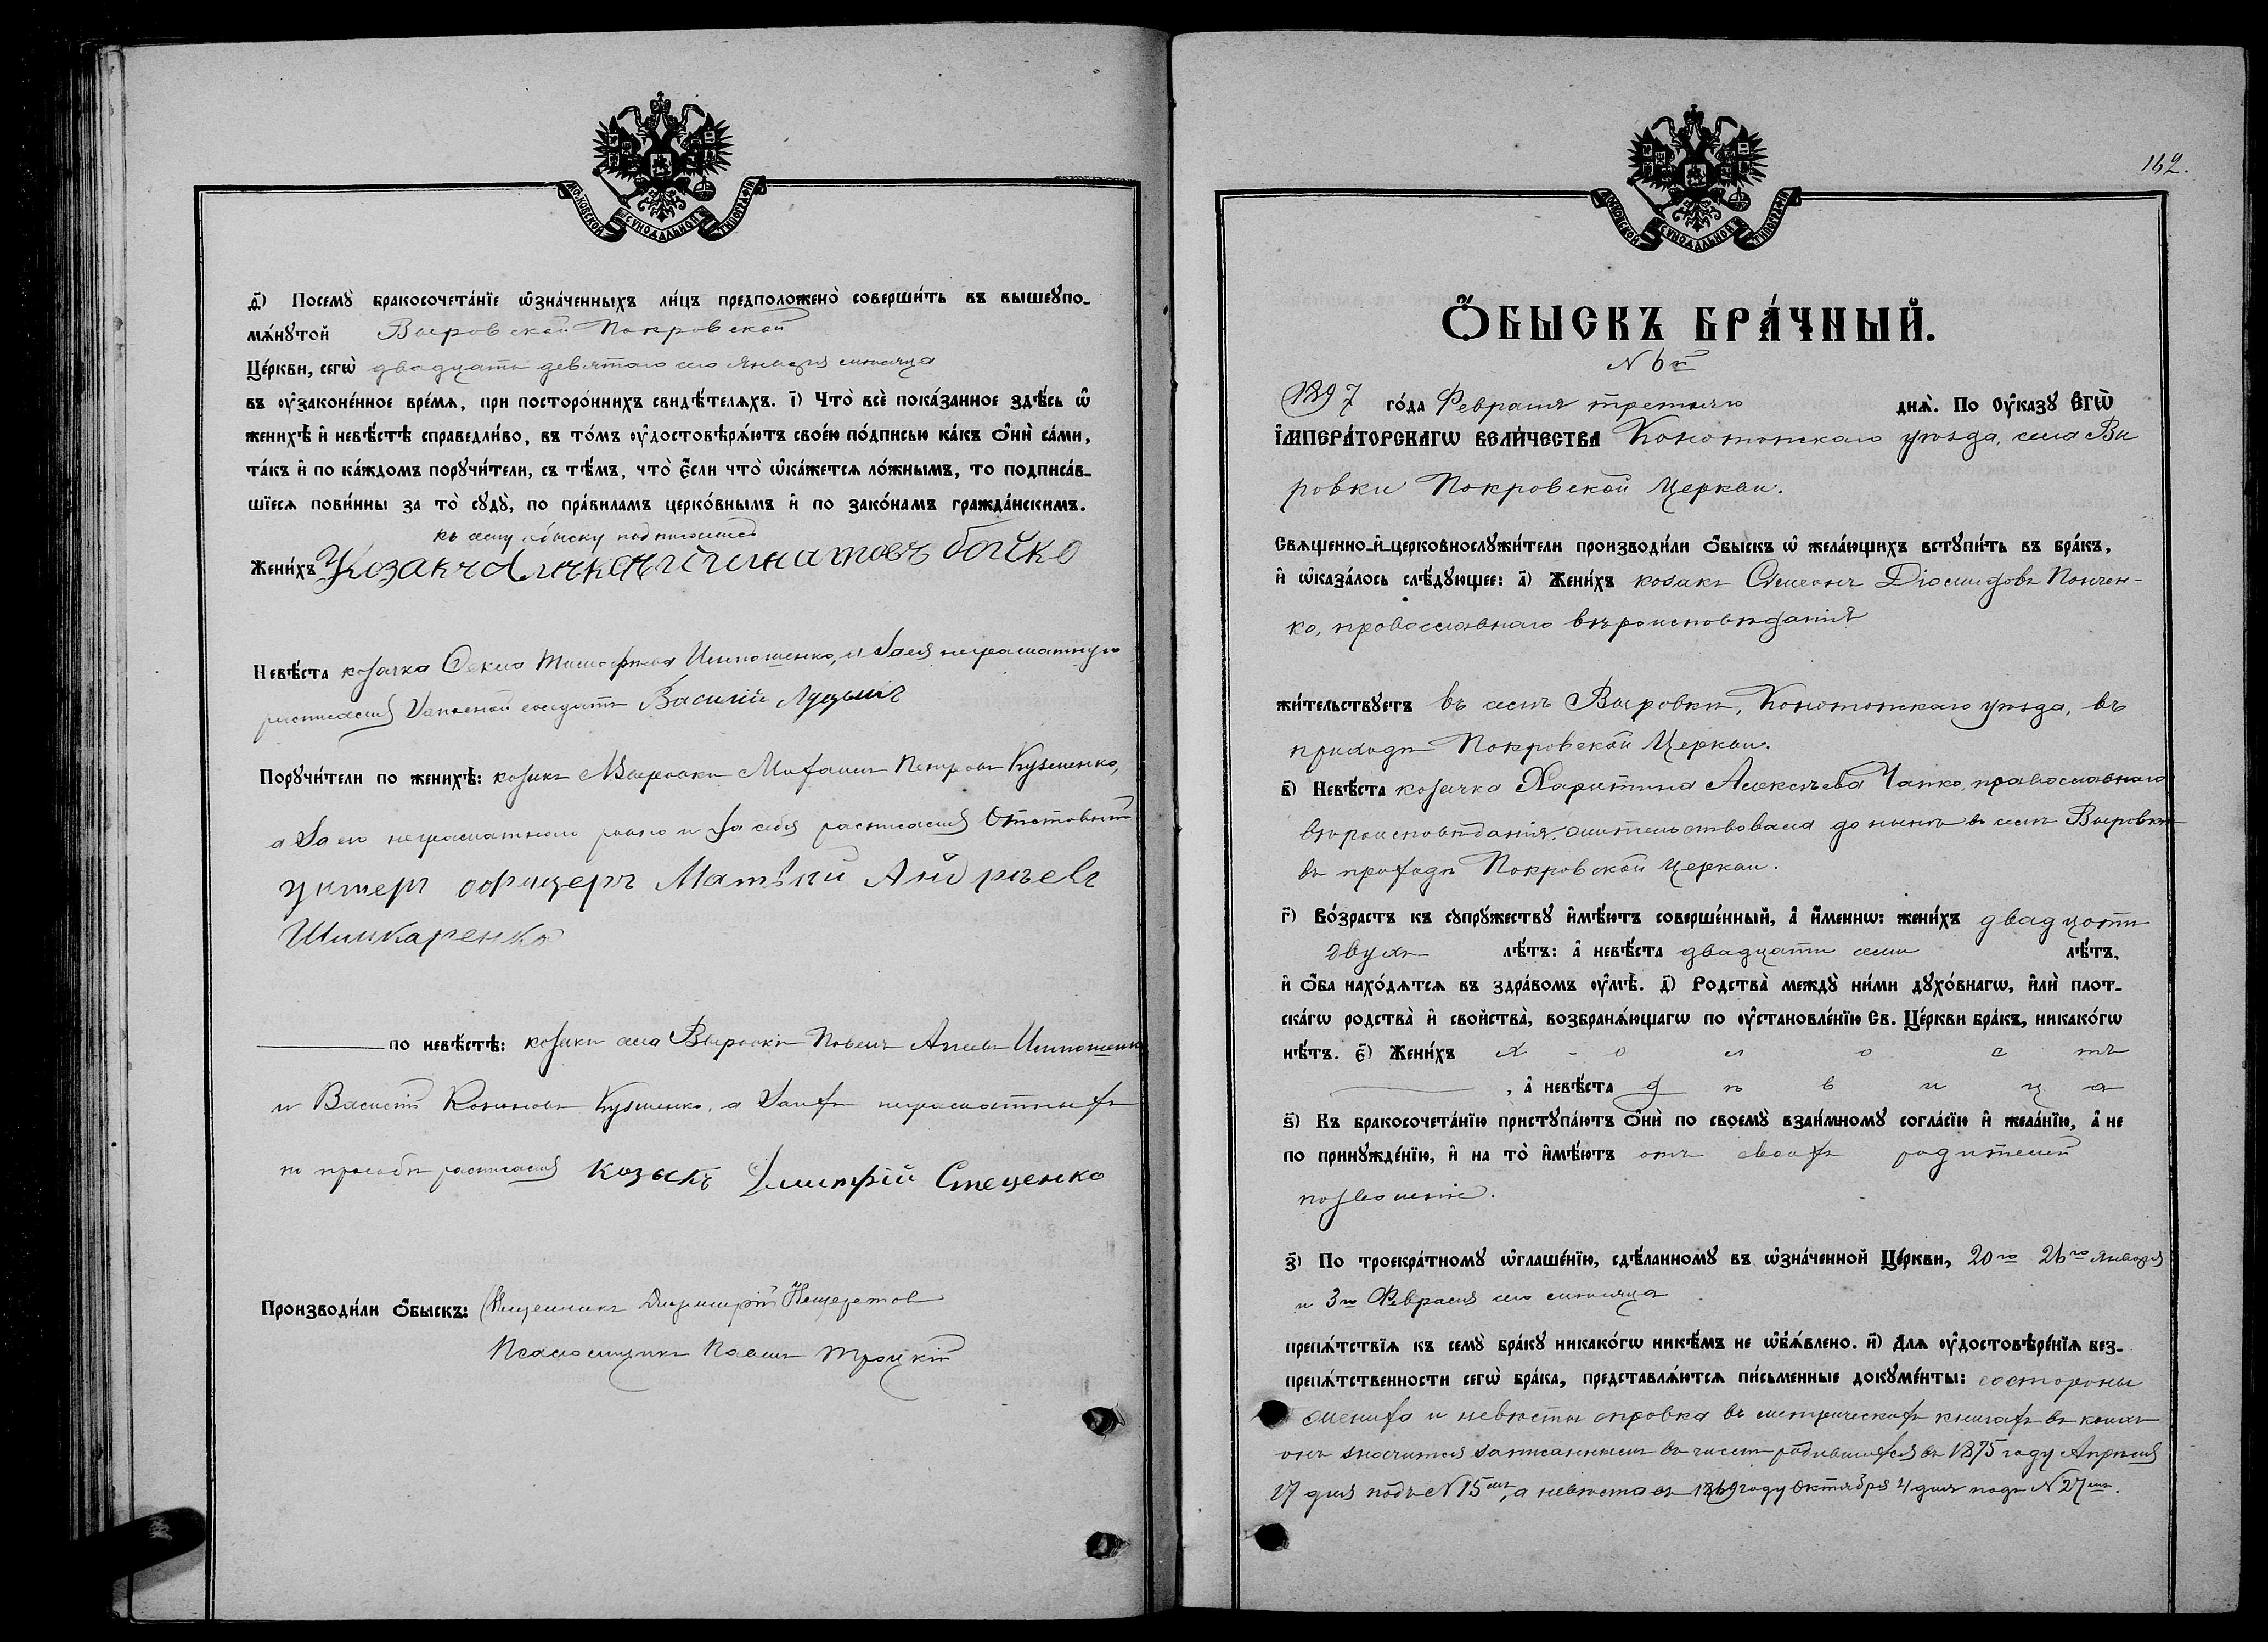 МОСКОВСКОЙ СѴНОДАЛЬНОЙ ТИПОГРАФІИ
д҃і) Посемꙋ̀ бракосочета́нїе ѡ҆зна́ченныхъ ли́цъ предположено̀ соверши́ть въ вышеꙋпо-
мѧ́нꙋтой Выровской Покровской
Це́ркви, сегѡ̀ двадцать девятаго сего Января мѣсяца
въ ᲂу҆законе́нное вре́мѧ, при посторо́ннихъ свидѣ́телѧхъ. і҃) Что̀ всѐ пока́занное здѣ́сь ѡ҆
женихѣ̀ и҆ невѣ́стѣ справедли́во, въ то́мъ ᲂу҆достовѣрѧ́ютъ свое́ю по́дписью ка́къ ѻ҆нѝ са́ми,
та́къ и҆ по ка́ждомъ порꙋчи́тели, съ тѣ́мъ, что̀ є҆́сли что̀ ѡ҆ка́жетсѧ ло́жнымъ, то подписа́в-
шїесѧ пови́нны за то̀ сꙋдꙋ̀, по пра́виламъ церко́внымъ и҆ по зако́намъ гражда́нскимъ.
къ сему обыску подписался
Жени́хъ Козакъ Игнатовъ бойко
Невѣ́ста козачка Фекла Тимофѣева Иллюшенко, а за нея неграмотную
росписался запасной солдатъ Василій Луцикъ
Порꙋчи́тели по женихѣ̀: козакъ Выровки Михаилъ Петровъ Кузменко,
а за его неграмотного равно и за себя росписался Отставный
унтеръ офицеръ Матвѣй Андреевъ
Шинкаренко
по невѣ́стѣ: козаки села Выровки Павелъ Иллюшенко
и Василій Кононовъ Кузменко, а за нихъ неграмотныхъ
по просьбѣ росписался козакъ Дмитрій Стеценко
Производи́ли ѻ҆́быскъ: Священникъ Димитрій Нещеретов
Псаломщикъ Павелъ Троцкій
162.
МОСКОВСКОЙ СѴНОДАЛЬНОЙ ТИПОГРАФІИ
Ѻ҆́БЫСКЪ БРА́ЧНЫЙ.
N 6й
1897 го́да Февраля третьяго днѧ̀. По Оу҆ка́зꙋ ЕГѠ̀
І҆МПЕРА́ТОРСКАГѠ ВЕЛИ́ЧЕСТВА Конотопскаго уѣзда, села Вы
ровки Покровской Церкви.
Свѧщенно-и҆-церковнослꙋжи́тели производи́ли ѻ҆́быскъ ѡ҆ жела́ющихъ встꙋпи́ть въ бра́къ,
и҆ ѡ҆каза́лось слѣ́дꙋющее: а҃) Жени́хъ козакъ Симеонъ Діомидовъ Попчен-
ко, православнаго вѣроисповѣданія
жи́тельствꙋетъ въ селѣ Выровки, Конотопскаго уѣзда, въ
приходѣ Покровской Церкви.
в҃) Невѣ́ста козачка Харитина Алексѣева Чапко, православнаго
вѣроисповѣданія, жительствовала до нынѣ въ селѣ Выровки
въ приходѣ Покровской Церкви.
г҃) Во́зрастъ къ сꙋпрꙋ́жествꙋ и҆мѣ́ютъ соверше́нный, а҆ и҆́менно: жени́хъ двадцати
двухъ лѣ́тъ: а҆ невѣ́ста двадцати семи лѣ́тъ,
и҆ ѻ҆́ба нахо́дѧтсѧ въ здра́вомъ ᲂу҆мѣ̀. д҃) Родства̀ междꙋ̀ ни́ми дꙋхо́внагѡ, и҆лѝ плот-
ска́гѡ родства̀ и҆ сво́йства̀, возбранѧ́ющагѡ по ᲂу҆становле́нїю Св. Це́ркви бра́къ, никако́гѡ
нѣ́тъ. є҃) Жени́хъ х о л о с тъ
, а҆ невѣ́ста д ѣ в и ц а
ѕ҃) Къ бракосочета́нїю пристꙋпа́ютъ ѻ҆нѝ по своемꙋ̀ взаи́мномꙋ согла́сїю и҆ жела́нїю, а҆ не
по принꙋжде́нїю, и҆ на то̀ и҆мѣ́ютъ отъ своихъ родителей
позволеніе.
з҃) По троекра́тномꙋ ѡ҆глаше́нїю, сдѣ́ланномꙋ въ ѡ҆зна́ченной Це́ркви, 20го 26го Января
и 3го Февраля сего мѣсяца
препѧ́тствїѧ къ семꙋ̀ бра́кꙋ никако́гѡ никѣ́мъ не ѡ҆б̾ѧ́влено. и҃) Длѧ ᲂу҆достовѣре́нїѧ без-
препѧ́тственности сегѡ̀ бра́ка, представлѧ́ютсѧ пи́сьменные докꙋме́нты: со стороны
жениха и невѣсты справка въ метрическихъ книгахъ въ коихъ
онъ значится записаннымъ въ числѣ родившихся въ 1875 году Апрѣля
27 дня подъ N 15мъ, а невѣста въ 1869 году Октября 4 дня подъ N 27мъ.